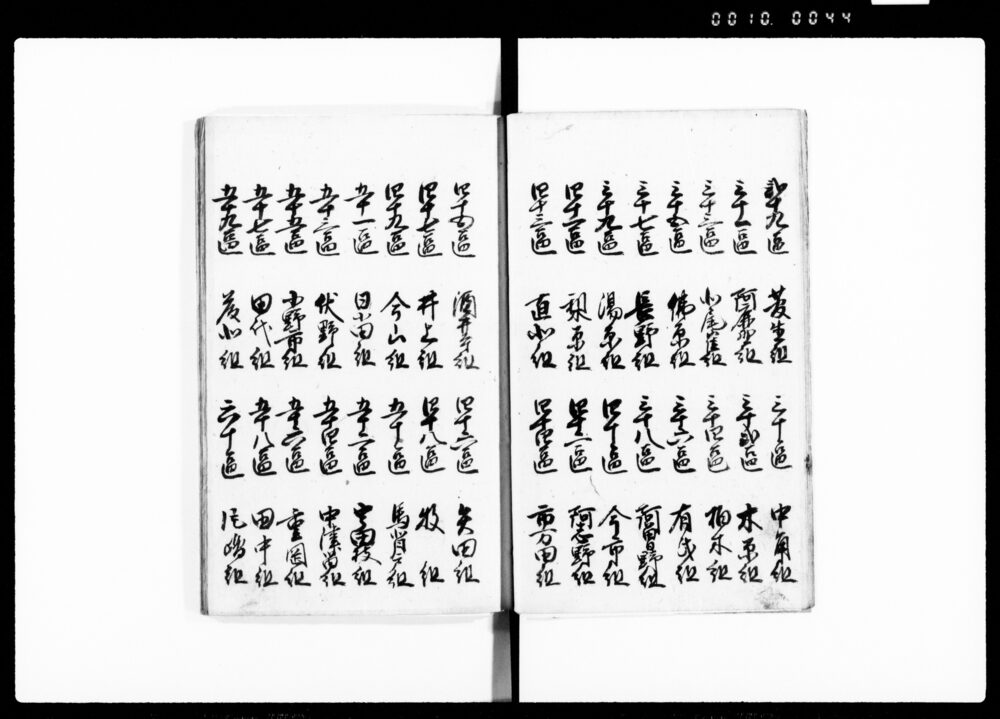 0010. 0044
貳十九區 菱生組 三十區 中角組
三十一區 組 三十貳區 木原組
三十三區 組 三十四區 柏木組
三十五區 佛原組 三十六區 有氏組
三十七區 長野組 三十八區 組
三十九區 湯原組 四十區 今市組
四十一區 原組 四十二區 阿志野組
四十三區 直北組 四十四區 市万田組
四十五區 酒井寺組 四十六區 矢田組
四十七區 井上組 四十八區 牧組
四十九區 今山組 五十區 馬背戸組
五十一區 日小田組 五十二區 組
五十三區 伏野組 五十四區 中津留組
五十五區 小野市組 五十六區 重岡組
五十七區 田代組 五十八區 田中組
五十九區 組 六十區 尾崎組